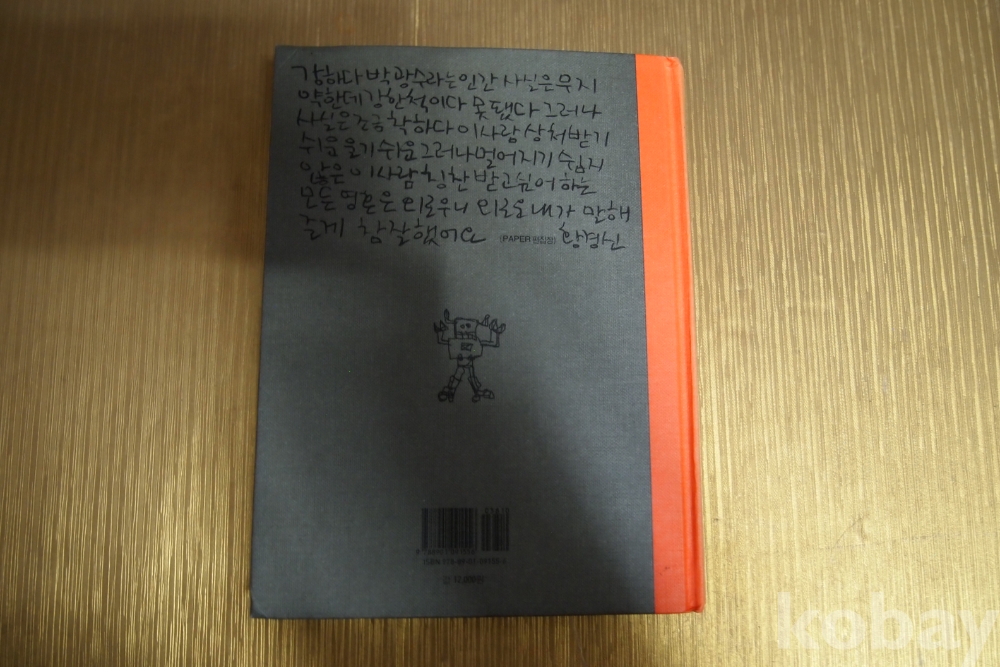 강하다 박광수라는 인간 사실은 무지
약한데 강한척이다 못됐다 그러나
사실은 조금 착하다 이사람 상처받기
쉬운 울기 쉬운 그러나 멀어지기 쉽지
않은 이사람 칭찬 받고싶어 하는
모든 영혼은 외로우니 외로운 내가 말해
줄게 참 잘했어요 (PAPER 편집장) 황경신
값 12,000원
kobay